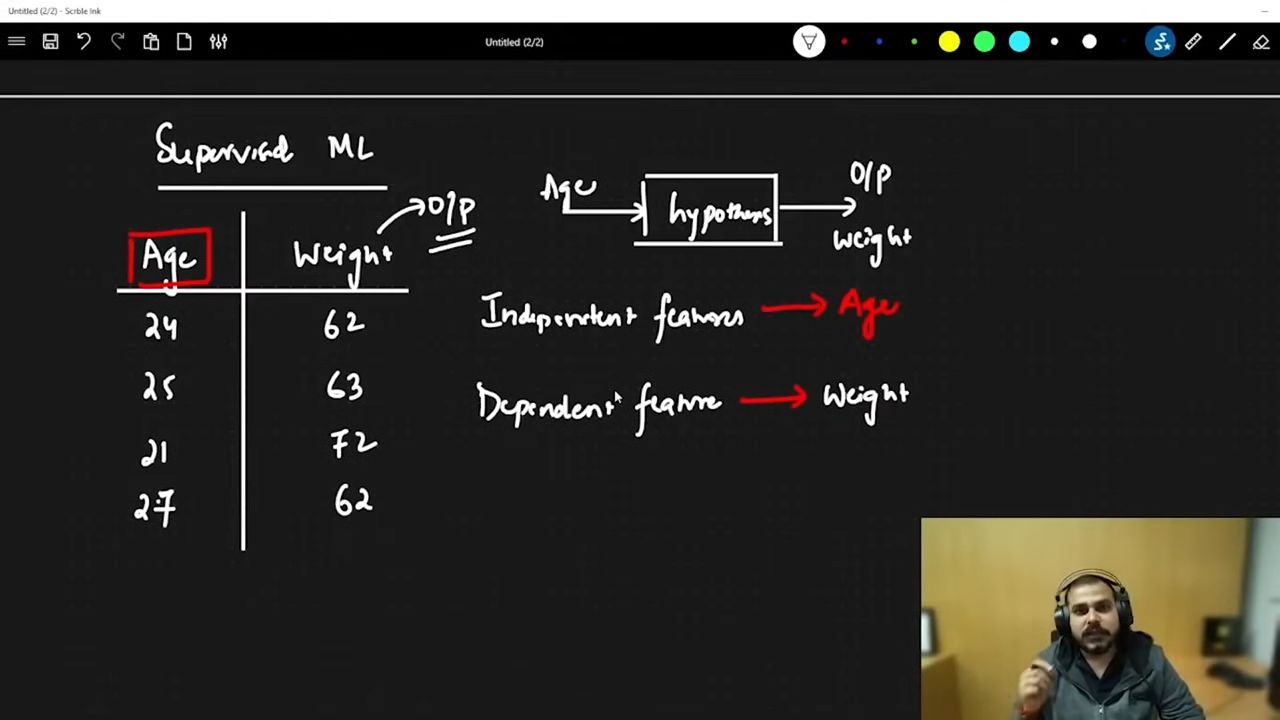 Untitled (2/2) - Scrble Ink
Untitled (2/2)
Supervised ML
Age Weight → O/P
24 62
25 63
21 72
27 62
Age → hypothesis → O/P
Weight
Independent features → Age
Dependent feature → Weight